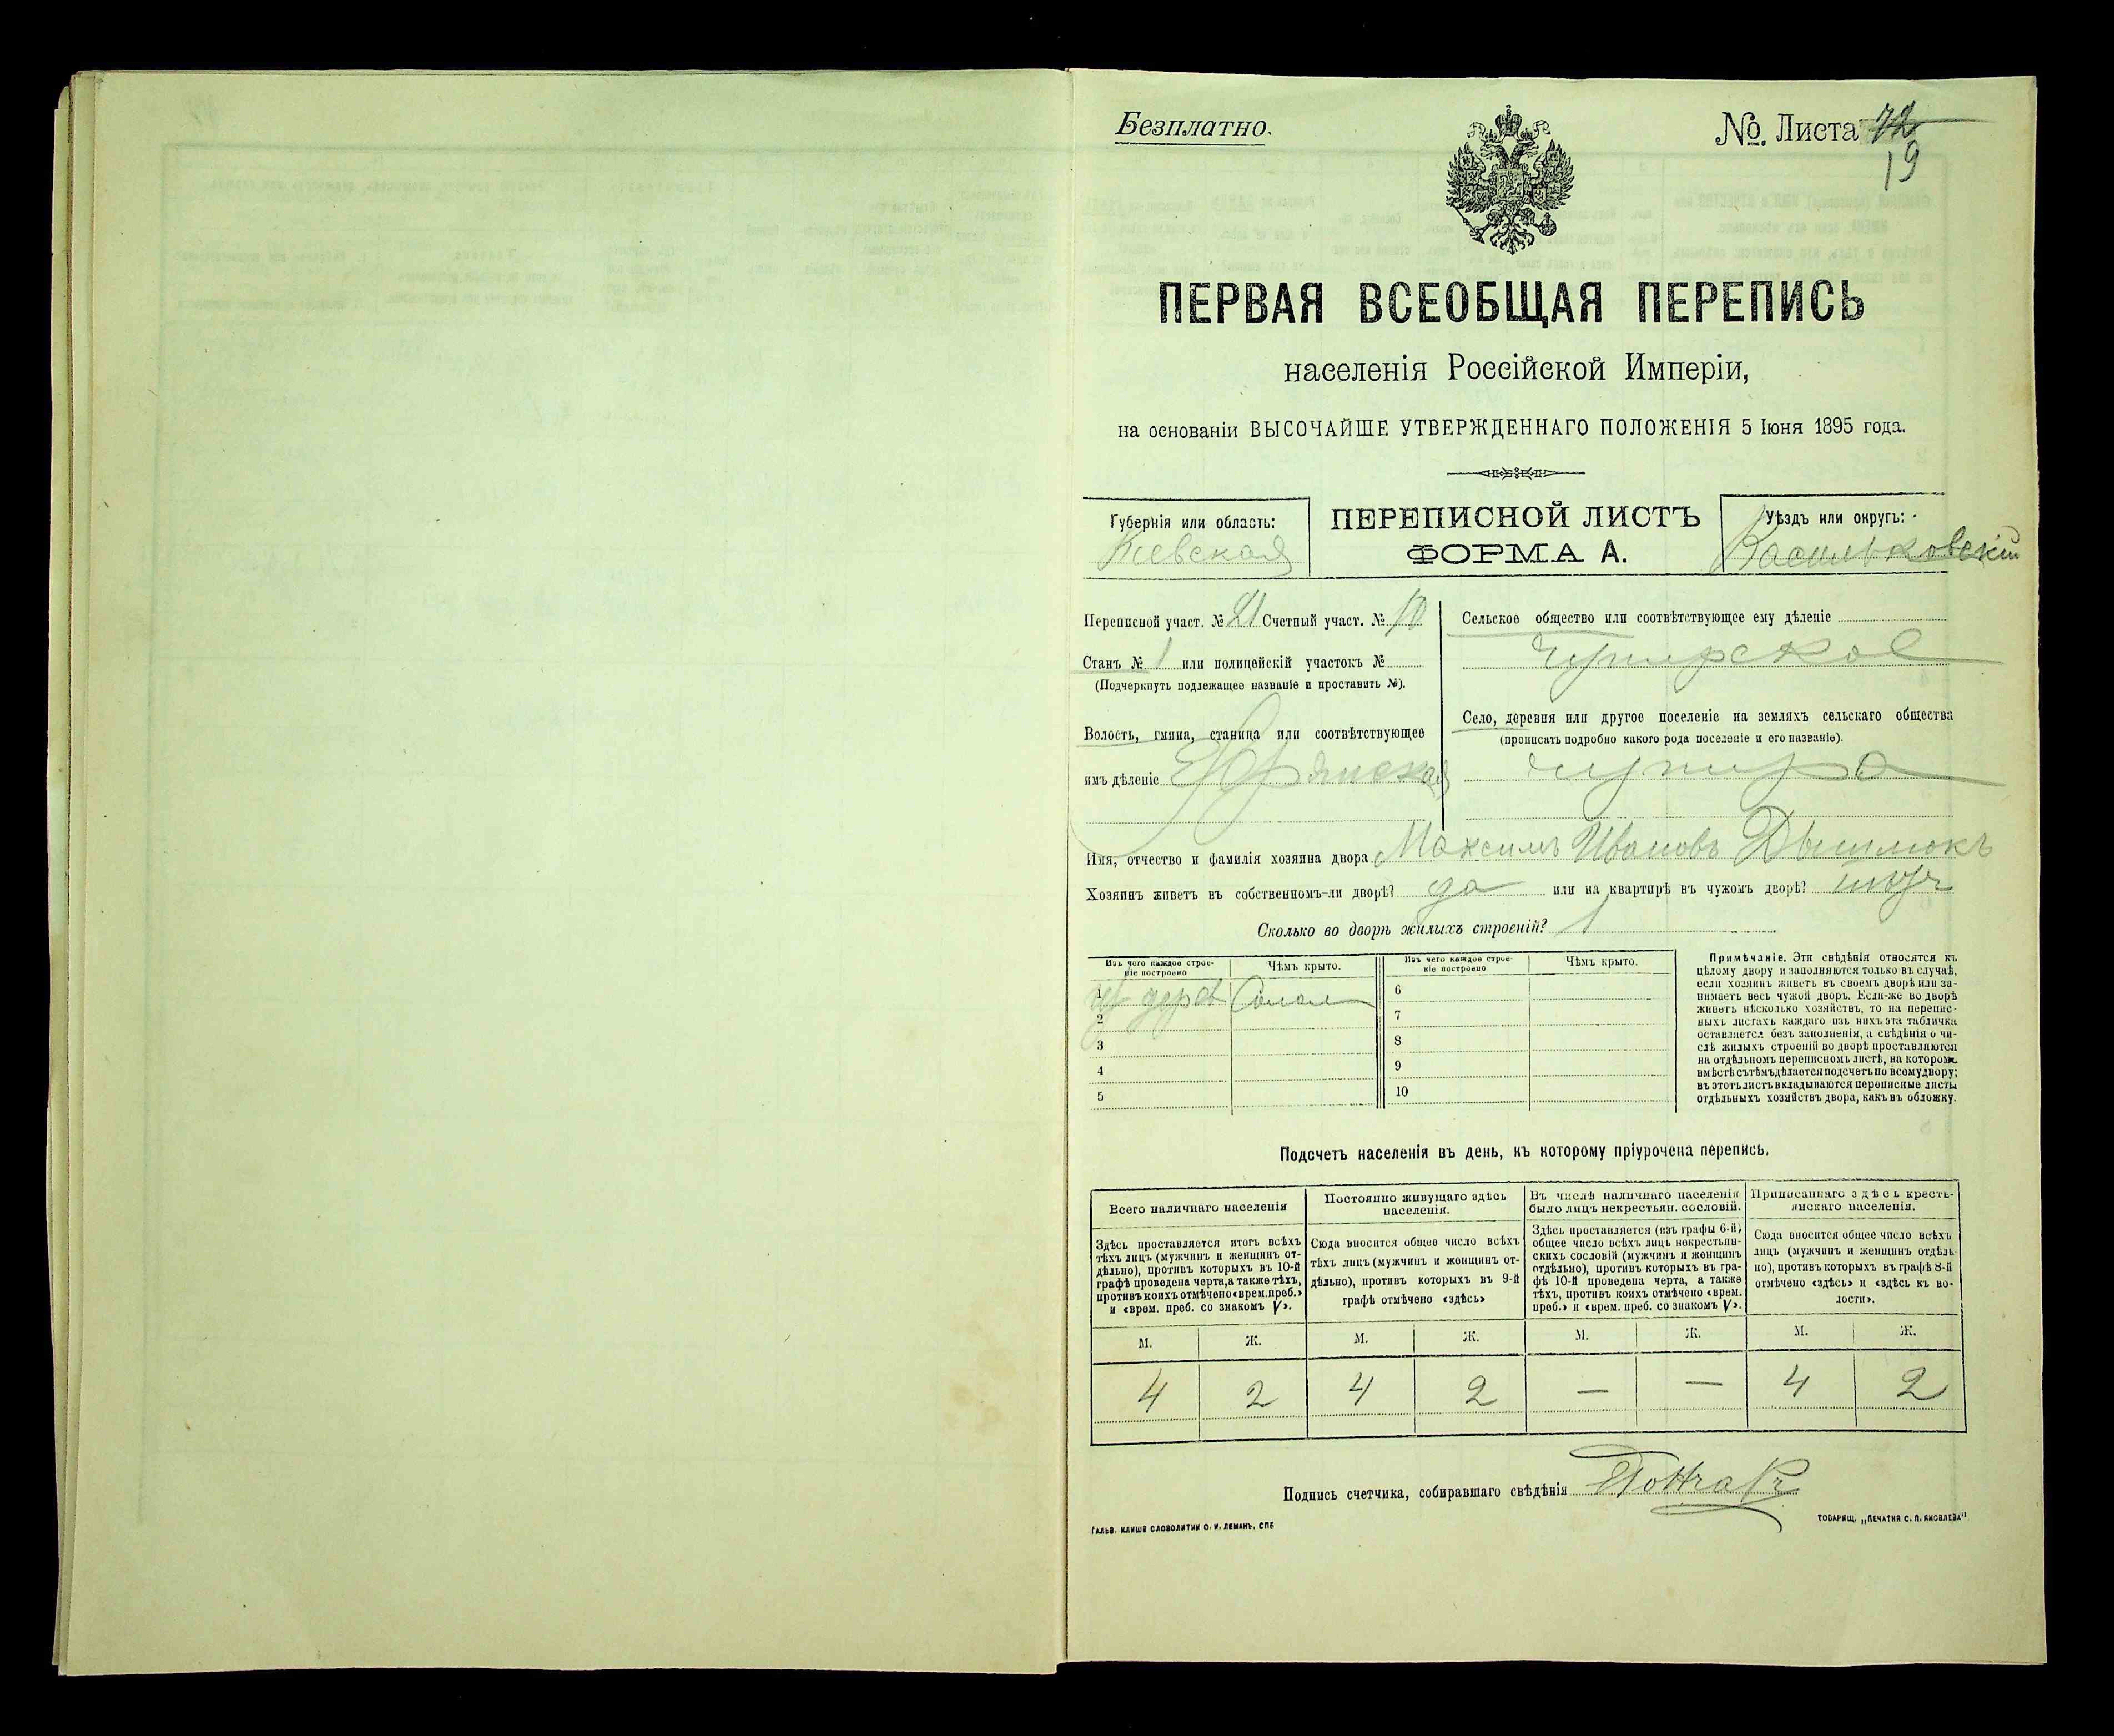 Безплатно.
№ Листа 72
19
ПЕРВАЯ ВСЕОБЩАЯ ПЕРЕПИСЬ
населенія Россійской Имперіи,
на основаніи ВЫСОЧАЙШЕ УТВЕРЖДЕННАГО ПОЛОЖЕНІЯ 5 Іюня 1895 года.
Губернія или область:
Кіевская
ПЕРЕПИСНОЙ ЛИСТЪ
ФОРМА А.
Уѣздъ или округъ:
Васильковскій
Переписной участ. № 21 Счетный участ. № 10
Станъ № 1 или полицейскій участокъ №
(Подчеркнуть подлежащее названіе и проставить №).
Волость, гмина, станица или соотвѣтствующее
имъ дѣленіе
Сельское общество или соотвѣтствующее ему дѣленіе
Чупирское
Село, деревня или другое поселеніе на земляхъ сельскаго общества
(прописать подробно какого рода поселеніе и его названіе).
Чупира
Имя, отчество и фамилія хозяина двора Максимъ Ивановъ
Хозяинъ живетъ въ собственномъ-ли дворѣ? да или на квартирѣ въ чужомъ дворѣ?
Сколько во дворѣ жилыхъ строеній? 1
Изъ чего каждое строе-
ніе построено
Чѣмъ крыто.
Изъ чего каждое строе-
ніе построено
Чѣмъ крыто.
1
6
2
7
3
8
4
9
5
10
Примѣчаніе. Эти свѣдѣнія относятся къ
цѣлому двору и заполняются только въ случаѣ,
если хозяинъ живетъ въ своемъ дворѣ или за-
нимаетъ весь чужой дворъ. Если-же во дворѣ
живетъ нѣсколько хозяйствъ, то на перепис-
ныхъ листахъ каждаго изъ нихъ эта табличка
оставляется безъ заполненія, а свѣдѣнія о чи-
слѣ жилыхъ строеній во дворѣ проставляются
на отдѣльномъ переписномъ листѣ, на которомъ
вмѣстѣ съ тѣмъ дѣлается подсчетъ по всему двору;
въ этотъ листъ вкладываются переписные листы
отдѣльныхъ хозяйствъ двора, какъ въ обложку.
Подсчетъ населенія въ день, къ которому пріурочена перепись.
Всего наличнаго населенія
Здѣсь проставляется итогъ всѣхъ
тѣхъ лицъ (мужчинъ и женщинъ от-
дѣльно), противъ которыхъ въ 10-й
графѣ проведена черта, а также тѣхъ,
противъ коихъ отмѣчено «врем. преб.»
и «врем. преб. со знакомъ V».
Постоянно живущаго здѣсь
населенія.
Сюда вносится общее число всѣхъ
тѣхъ лицъ (мужчинъ и женщинъ от-
дѣльно), противъ которыхъ въ 9-й
графѣ отмѣчено «здѣсь»
Въ числѣ наличнаго населенія
было лицъ некрестьян. сословій.
Здѣсь проставляется (изъ графы 6-й)
общее число всѣхъ лицъ некрестьян-
скихъ сословій (мужчинъ и женщинъ
отдѣльно), противъ которыхъ въ гра-
фѣ 10-й проведена черта, а также
тѣхъ, противъ коихъ отмѣчено «врем.
преб.» и «врем. преб. со знакомъ V».
Приписаннаго здѣсь кресть-
янскаго населенія.
Сюда вносится общее число всѣхъ
лицъ (мужчинъ и женщинъ отдѣль-
но), противъ которыхъ въ графѣ 8-й
отмѣчено «здѣсь» и «здѣсь къ во-
лости».
М. Ж. М. Ж. М. Ж. М. Ж.
4 2 4 2 — — 4 2
Подпись счетчика, собиравшаго свѣдѣнія
ГАЛЬВ. КЛИШЕ СЛОВОЛИТНИ О. И. ЛЕМАНЪ, СПБ
ТОВАРИЩ. „ПЕЧАТНЯ С. П. ЯКОВЛЕВА"